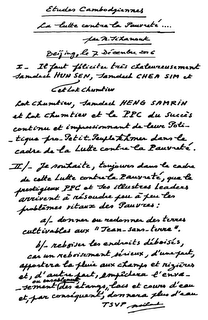 Etudes Cambodgiennes
La lutte contre la Pauvreté ....
par N. Sihanouk
Beijing, le 7 Décembre 2006
I - Il faut féliciter très chaleureusement
Samdech HUN SEN, Samdech CHEA SIM et
Lok Chumtiev, Samdech HENG SAMRIN
et Lok Chumtiev et le PPC du Succès
continu et impressionnant de leur Poli-
tique pro-Petit Peuple khmer dans le
cadre de la Lutte contre la Pauvreté.
II/- Je souhaite, toujours dans le cadre
de cette Lutte contre la Pauvreté, que le
prestigieux PPC et ses illustres Leaders
arrivent à résoudre peu à peu les
problèmes vitaux des Pauvres :
a/- donner ou redonner des terres
cultivables aux "Jean-sans-terre".
b/- reboiser les endroits déboisés,
car un reboisement sérieux, d'une part,
apportera la pluie aux champs et rizières
et, d'autre part, empêchera d'enva-
sement des étangs, lacs et cours d'eau
et, par conséquent, donnera plus d'eau
TSVP